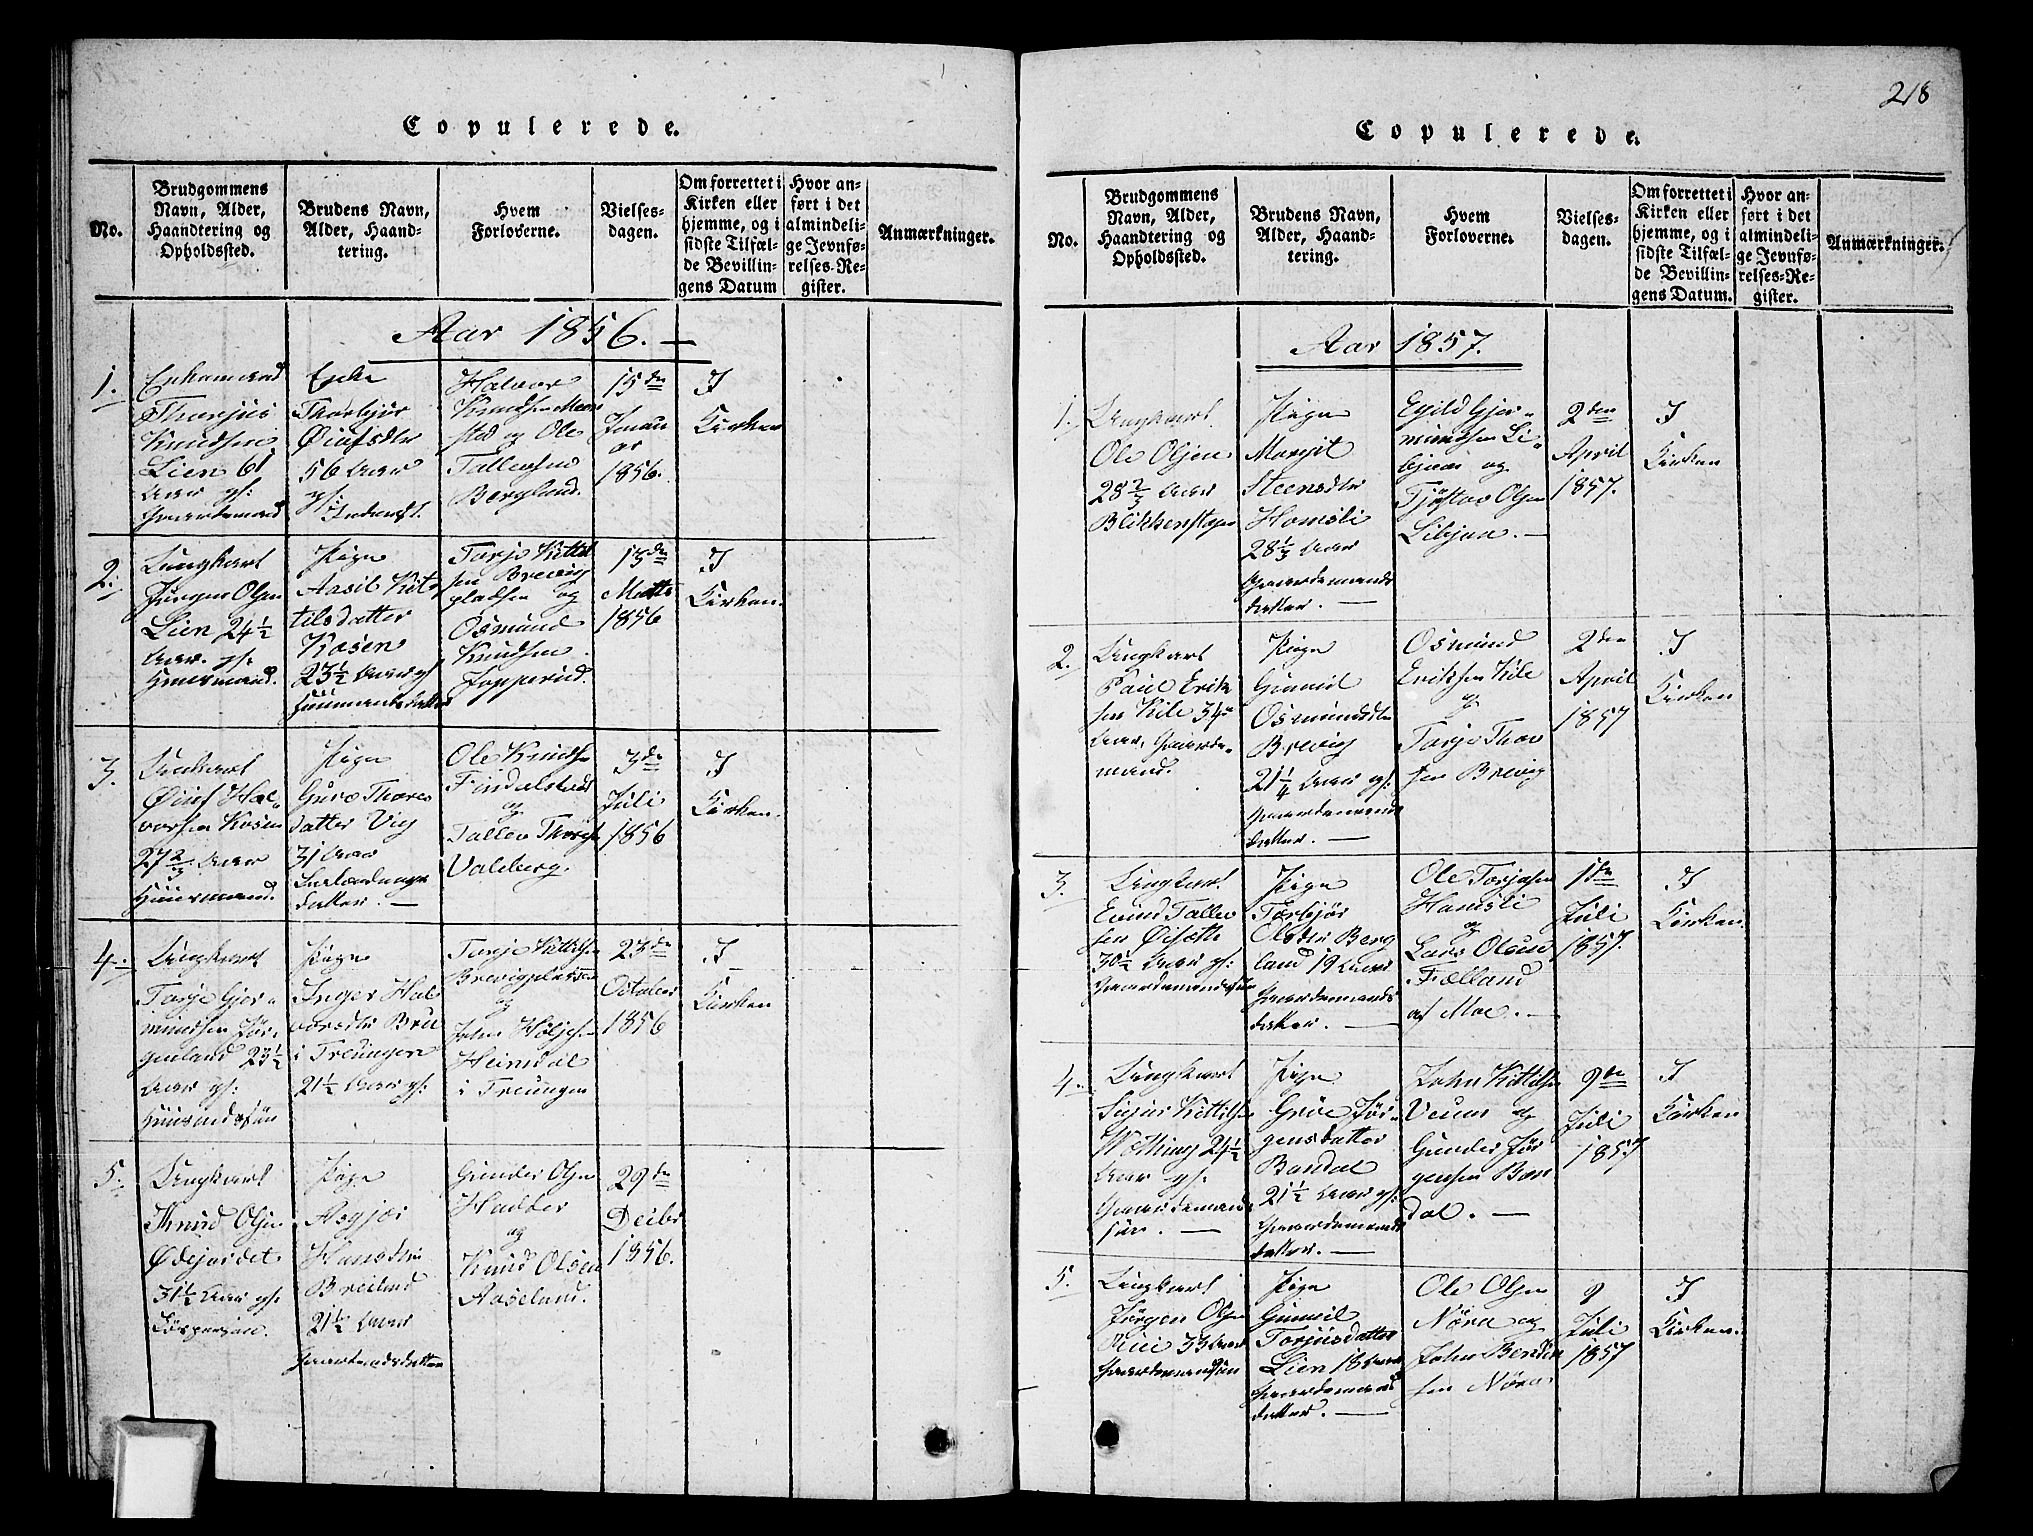 Copulerede.
No.
Brudgommens
Navn, Alder,
Haandtering og
Opholdssted.
Brudens Navn,
Alder, Haand-
tering.
Hvem
Forloverne.
Vielses-
dagen.
Om forrettet i
Kirken eller
hjemme, og i
sidste Tilfæl-
de Bevillin-
gens Datum
Hvor an-
ført i det
almindeli-
ge Jevnfø-
relses-Re-
gister.
Anmærkninger.
Aar 1856.
1.
Enkemand
Thorjus
Knudsen
Lien 61
Aar gs:
Gaardmand
Enke
Thorbjør
Øiufsdtr
56 Aar
gs:
Halvor
Knudsen Moen
stad og Ole
Tallevsen
Bergland.
15de
Januar
1856.
I
Kirken
2.
Ungkarl
Jørgen Olsen
Lien 24½
Aar. gs:
Huusmand.
Pige
Aasil Kit-
tilsdatter
Kosen
23½ Aar gs
Huusmandsdatter
Tarje Kittil
sen Brevig
pladsen og
Osmund
Knudsen
Fopperud.
13de
Marts
1856
I
Kirken.
3.
Ungkarl
Øiuf Hal-
vorsen Kosen
27⅔ Aar
Huusmand.
Pige
Guro Thores
datter Vig
31 Aar
datter. —
Ole Knudsen
Findalstad
og
Tallev
Valeberg.
3de
Juli
1856
I
Kirken.
4.
Ungkarl
Tarje Gjer-
mundsen Jør-
genland 23½
Aar gs:
Huusmandssøn
Pige
Inger Hal-
vorsdtr Bru
i Treungen
21½ Aar gs:
Tarje Kittilsen
Brevigpladsen
og
John
Heimdal
i Treungen
23de
October
1856
I
Kirken
5.
Ungkarl
Knud Olsen
Ødejordet
31½ Aar gs:
Pige
Asgjør
Hansdtr
Breiland
21½ Aar
Gaardmandsdatter
Gunder Olsen
Hadder
og
Knud Olsen
Aaseland.
29de
Decbr
1856.
218
Copulerede.
No.
Brudgommens
Navn, Alder,
Haandtering og
Opholdssted.
Brudens Navn,
Alder, Haand-
tering.
Hvem
Forloverne.
Vielses-
dagen.
Om forrettet i
Kirken eller
hjemme, og i
sidste Tilfæl-
de Bevillin-
gens Datum.
Hvor an-
ført i det
almindeli-
ge Jevnfø-
relses-Re-
gister.
Anmærkninger.
Aar 1857.
1.
Ungkarl
Ole Olsen
28⅔ Aar
Blikkenstøper
Pige
Margit
Steensdtr
Homsli
28⅓ Aar
Gaardemands
datter. —
Egild Gjer-
mundsen Li-
bjaar og
Tjøstov Olsen
Libjaa. —
2den
April
1857.
I
Kirken
2.
Ungkarl
Paul Erik
sen Kile 34
Aar, Gaarde-
mand.
Pige
Gunnil
Osmundsdtr
Brevig
21¼ Aar gs:
Gaardemands
datter. —
Osmund
Eriksen Kile
og
Tarje Thor
sen Brevig
2den
April
1857
I
Kirken
3.
Ungkarl
Evind Tallev
sen Øisæth
30½ Aar gs:
Gaardemandssøn
Pige
Torbjør
Olsdtr Berg
land 19 Aar
Gaardemands
datter. —
Ole Torjesen
Hamsli
og
Lars Olsen
Fælland
af Moe. —
1de
Juli
1857.
I
Kirken
4.
Ungkarl
Sigur Kittilsen
24½
Aar gs.
Gaardemands
søn. —
Pige
Gróe Jør-
gensdatter
Bandal
21½ Aar gs:
Gaardemands
datter. —
John Kittilsen
Veum og
Gunder Jør
gensen Ban
dal. —
9de
Juli
1857
I
Kirken
5.
Ungkarl
Jørgen Olsen
33 Aar
Gaardemandssøn
Pige
Gunvil
Torjusdatter
Lien 18 Aar
Gaardemands
datter. —
Ole Olsen
Nóra og
John Bendix
sen Nóra
9
Juli
1857
I
Kirken.